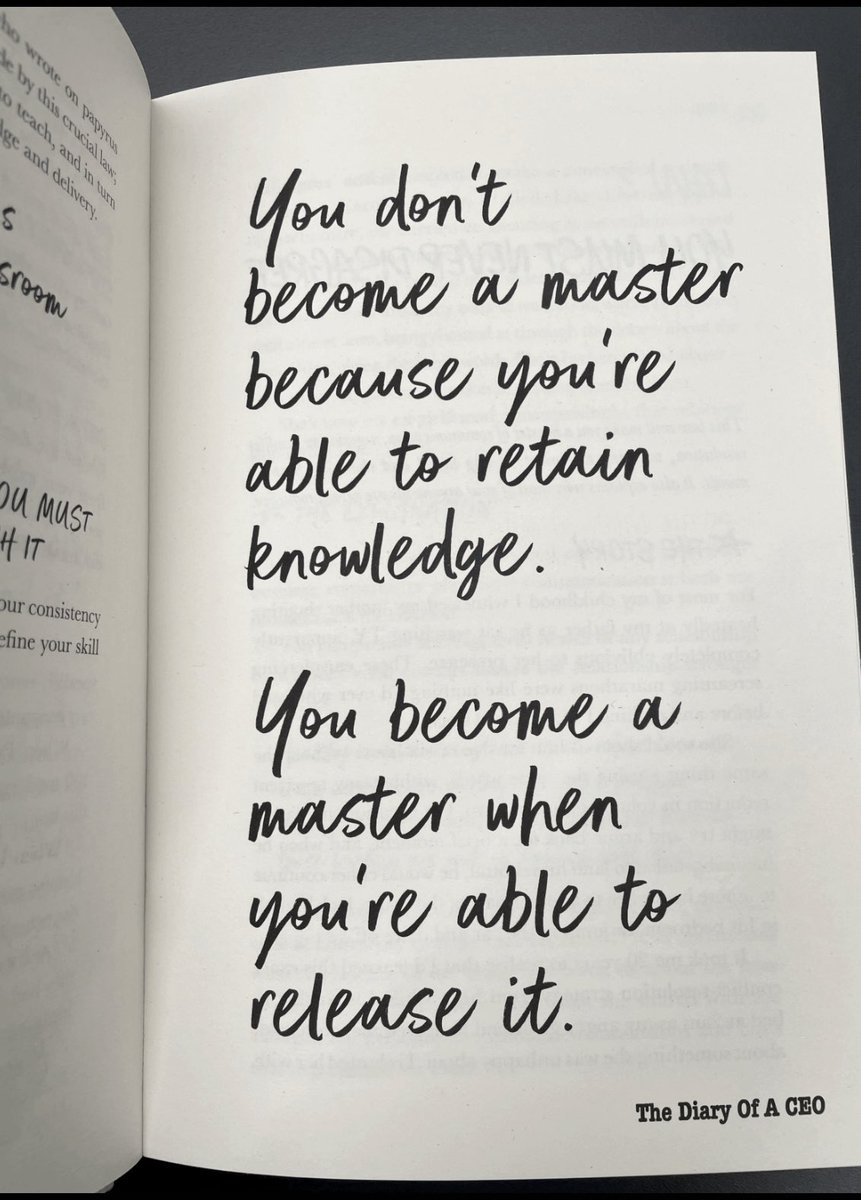 ho wrote on papyrus
de by this crucial law;
to teach, and in turn
dge and delivery.
s
sroom
OU MUST
H IT
our consistency
efine your skill
You don't
become a master
because you're
able to retain
knowledge.
You become a
master when
you're able to
release it.
The Diary Of A CEO